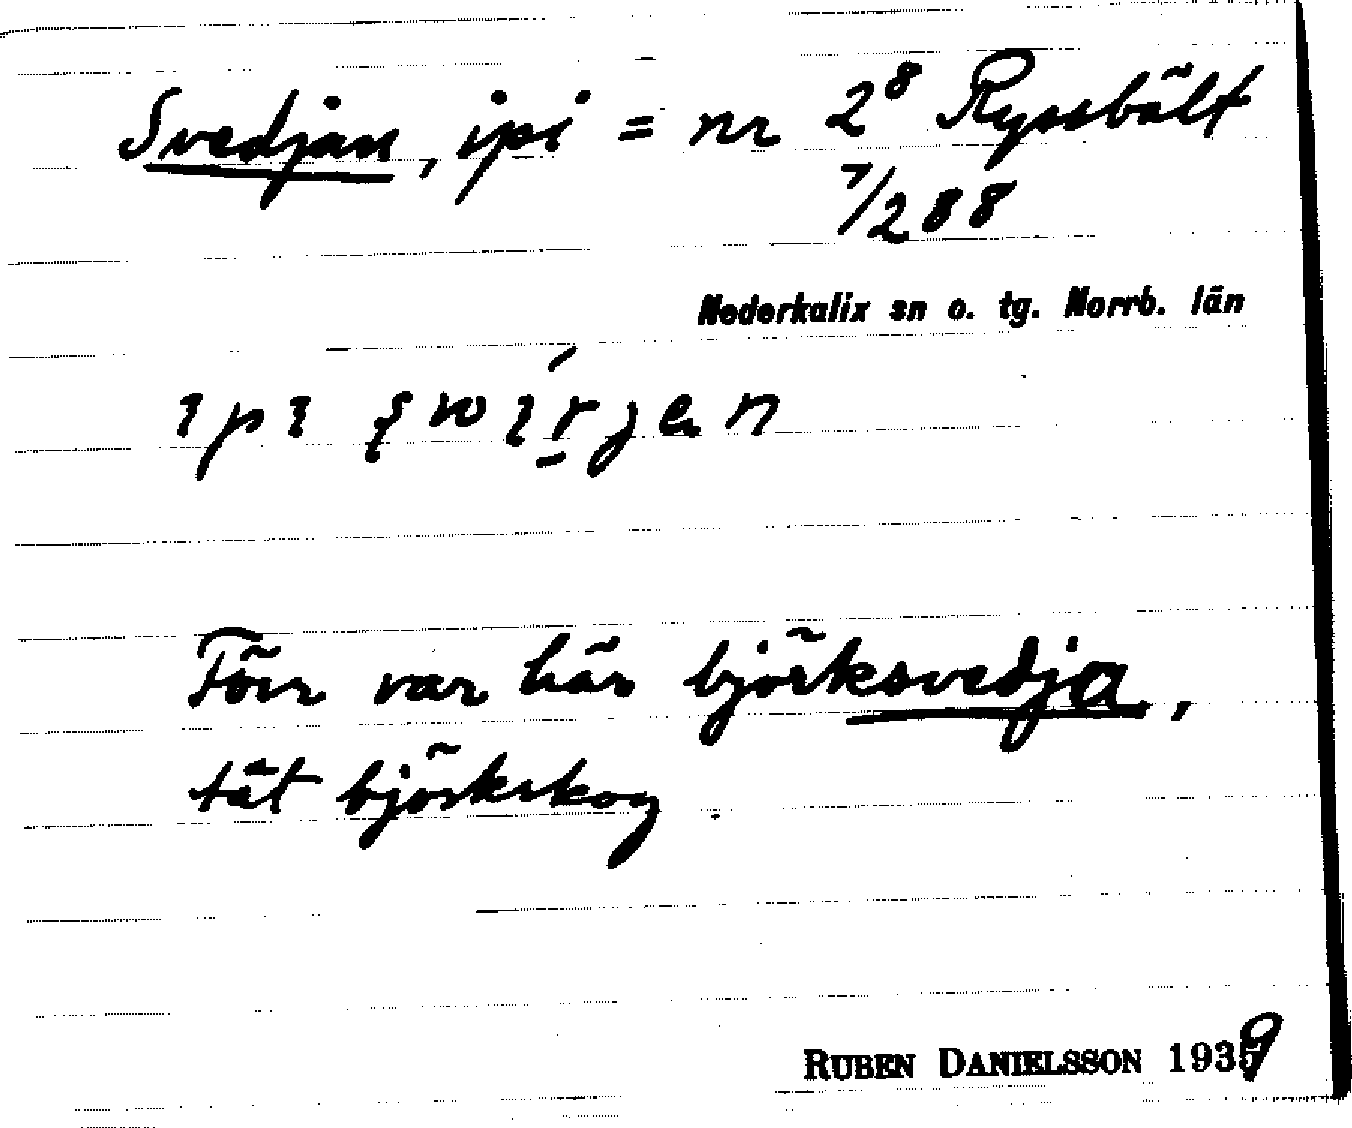 Svedjan, ipi = nr 2⁸ Ryssbält
7/288
Nederkalix sn o. tg. Norrb. län
ipi
Förr var här björksvedja,
tät björkskog.
RUBEN DANIELSSON 1939